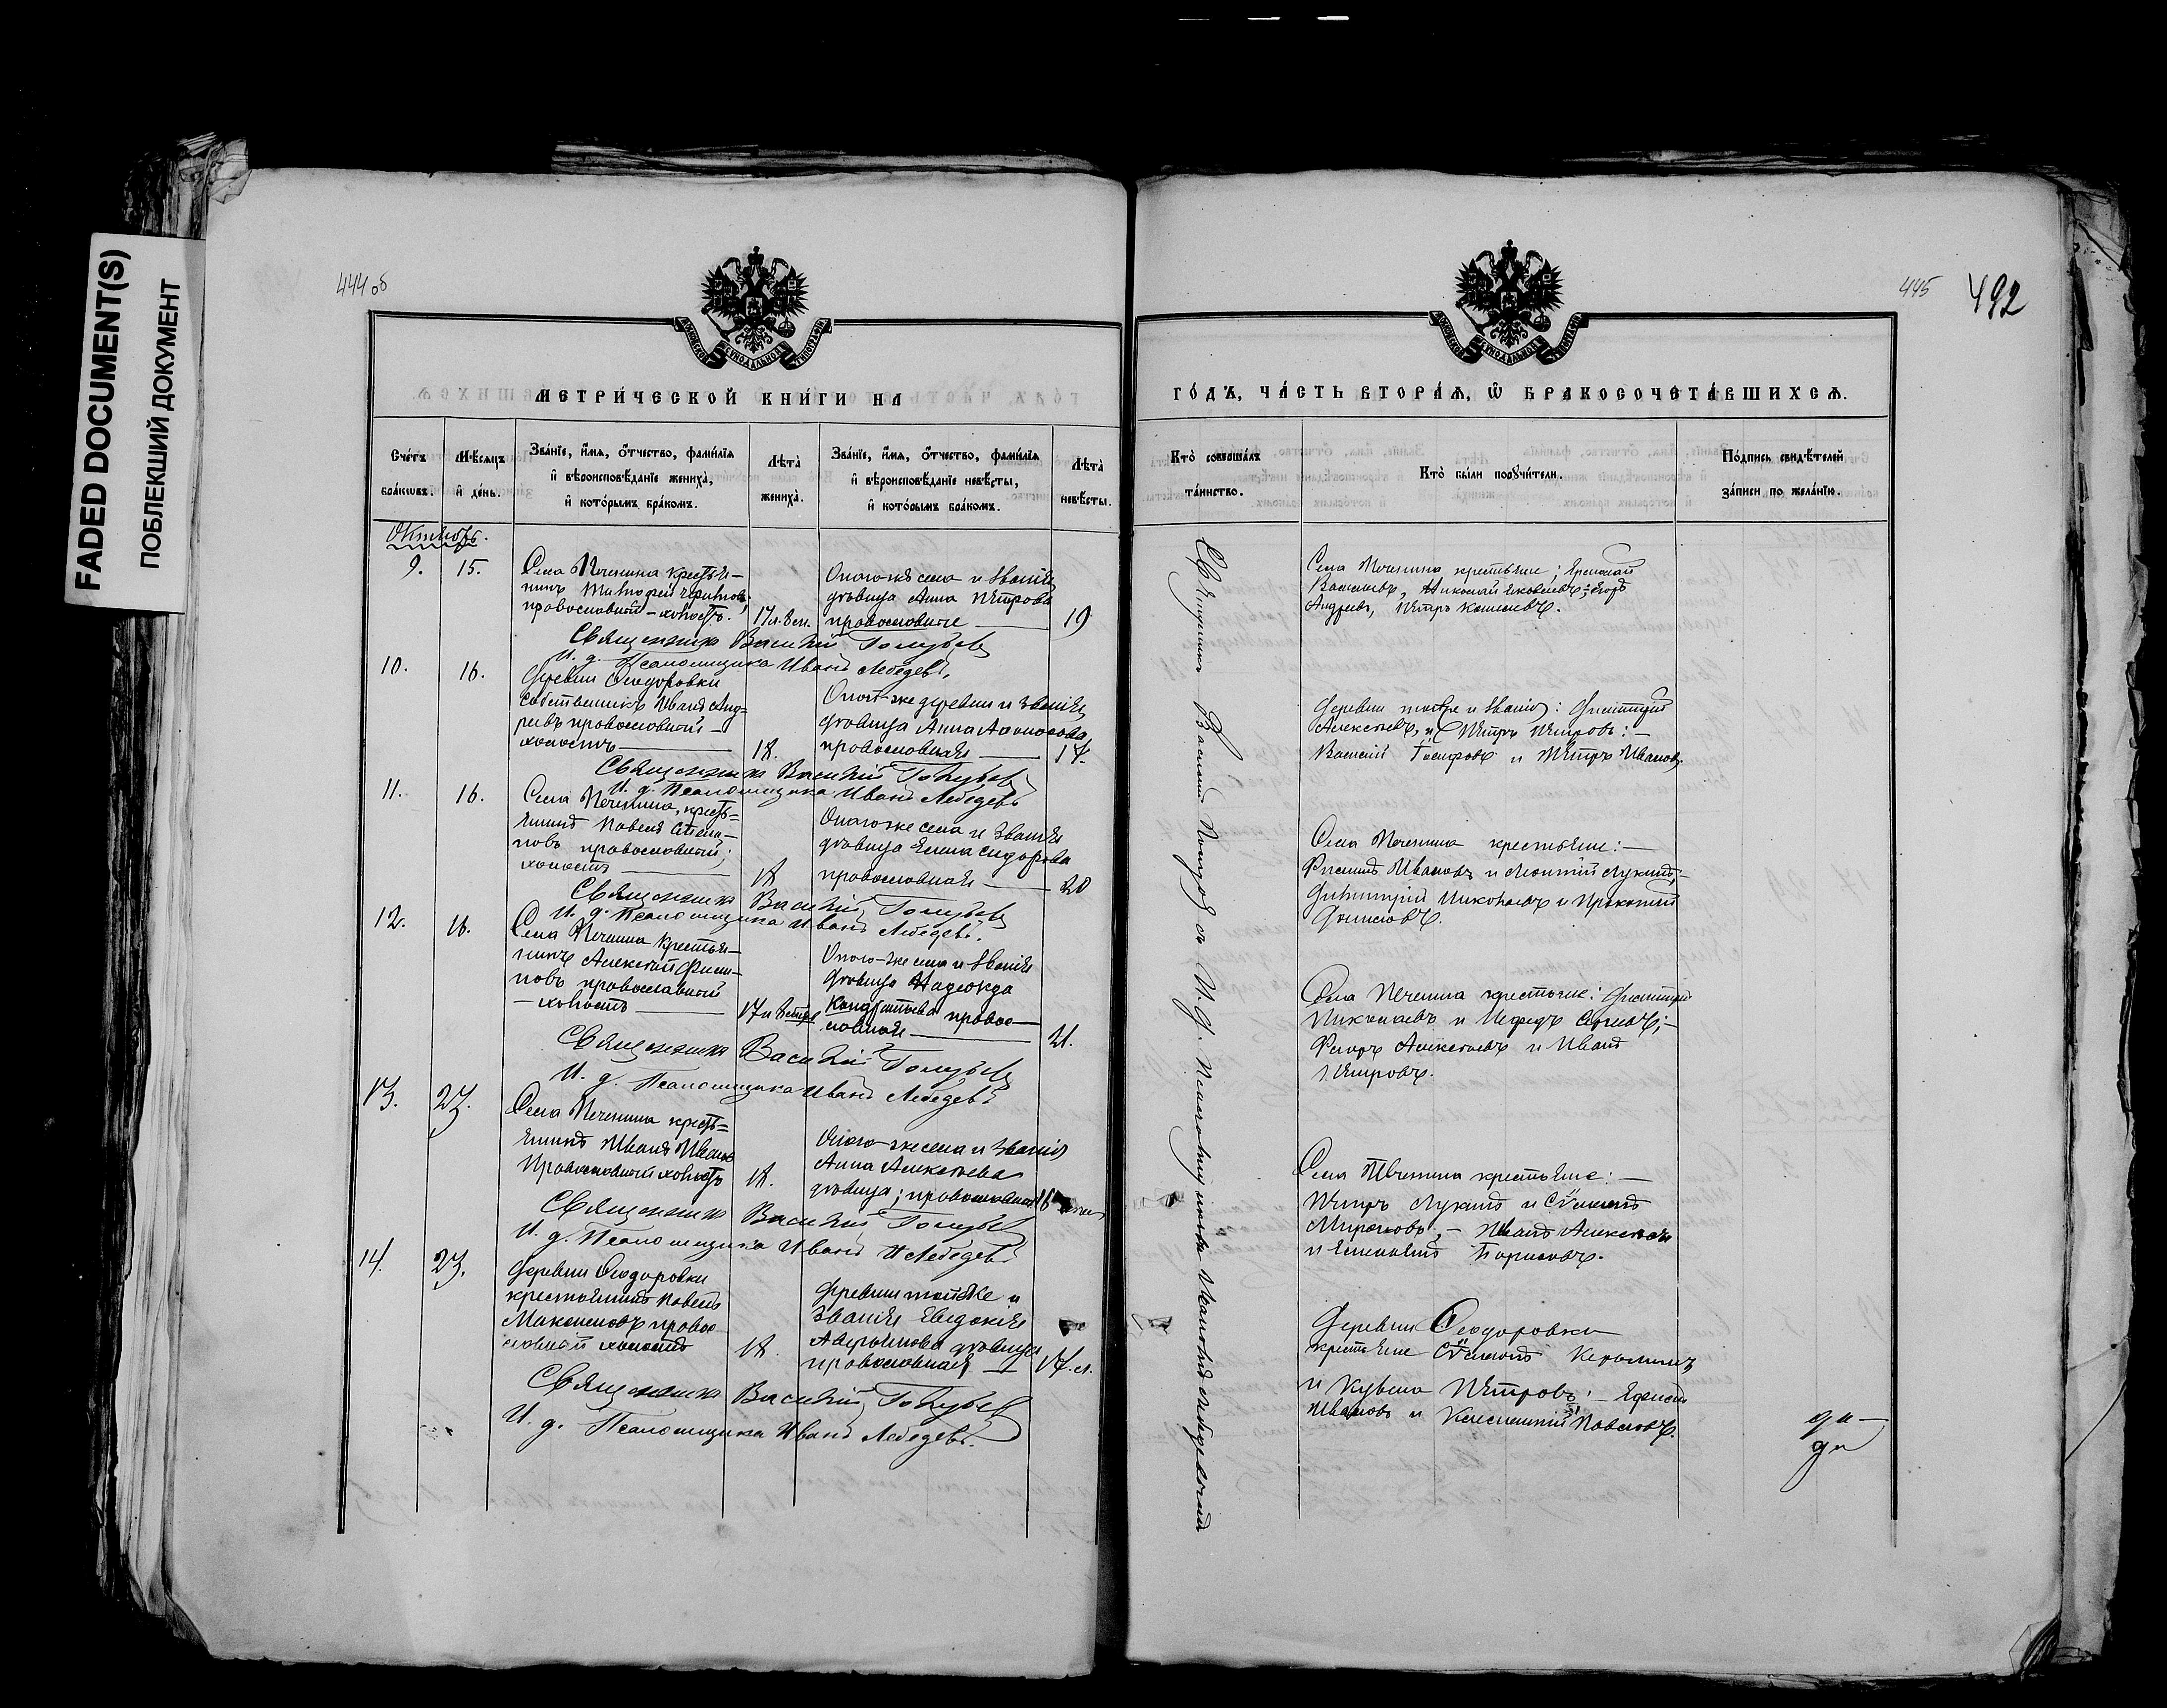 FADED DOCUMENT(S)
ПОБЛЕКШИЙ ДОКУМЕНТ
444 об
МЕТРИ́ЧЕСКОЙ КНИ́ГИ НА
Сче́тъ бра́ковъ.
Мѣ́сяцъ и҆ де́нь.
Зва́нїе, и҆́мѧ, ѻ҆́тчество, фами́лїѧ
и҆ вѣроисповѣ́данїе жениха̀,
и҆ кото́рымъ бра́комъ.
Лѣта̀ жениха̀.
Зва́нїе, и҆́мѧ, ѻ҆́тчество, фами́лїѧ
и҆ вѣроисповѣ́данїе невѣ́сты,
и҆ кото́рымъ бра́комъ.
Лѣта̀ невѣ́сты.
Октябрь.
9. 15.
Села Печенина крестья-
нинъ Тимофей
православный – холостъ.
Онаго же села и званія
дѣвица Анна Петрова
православная
19
Священникъ Василій Голубевъ
И. д. Псаломщика Иванъ Лебедевъ.
10. 16.
Деревни Ѳеодоровки
собственникъ Иванъ Анд-
реевъ православный –
холостъ
18.
Оной-же деревни и званія
дѣвица Анна
православная
17.
Священникъ Василій Голубевъ
И. д. Псаломщика Иванъ Лебедевъ
11. 16.
Села Печенина, кресть=
янинъ Павелъ Степа-
новъ православный;
холостъ
18
Онаго же села и званія
дѣвица Елена Сидорова
православная
20
Священникъ Василій Голубевъ
И. д. Псаломщика Иванъ Лебедевъ.
12. 16.
Села Печенина крестья-
нинъ Алексѣй Филип-
повъ православный
– холостъ
Онаго-же села и званія
дѣвица Надежда
Кондратьева правос-
лавная
21.
Священникъ Василій Голубевъ
И. д. Псаломщика Иванъ Лебедевъ
13. 23.
Села Печенина кресть=
янинъ Иванъ Ивановъ
Православный холостъ
18.
Онаго-же села и званія
Анна Алексѣева
дѣвица; православная
Священникъ Василій Голубевъ
И. д. Псаломщика Иванъ Лебедевъ
14. 23.
Деревни Ѳеодоровки
крестьянинъ Павелъ
Максимовъ право-
славный холостъ
18.
Деревни той же и
званія Евдокія
дѣвица
православная
17. л.
Священникъ Василій Голубевъ
И. д. Псаломщика Иванъ Лебедевъ.
445
492
ГО́ДЪ, ЧА́СТЬ ВТОРА́Ѧ, Ѡ҆ БРАКОСОЧЕТА́ВШИХСѦ.
Кто̀ соверша́лъ
та́инство.
Кто̀ бы́ли порꙋчи́тели.
По́дпись свидѣ́телей
за́писи по жела́нїю.
Священникъ Василій Голубевъ съ И. д. Псаломщикомъ Иваномъ Лебедевымъ
Села Печенина крестьяне:
Васильевъ, Николай Яковлевъ; Егоръ
Андреевъ, Петръ
Деревни той же и званія: Димитрій
Алексѣевъ, и Петръ Петровъ: –
Василій Іосифовъ и Петръ Ивановъ.
Села Печенина крестьяне: –
Филиппъ Ивановъ и Леонтій Лукинъ; –
Димитрій Николаевъ и Прокопій
Денисовъ.
Села Печенина крестьяне: Димитрій
Николаевъ и Сергеевъ; –
Алексѣевъ и Иванъ
Петровъ.
Села Печенина крестьяне: –
Петръ Лукинъ и Стефанъ
Мироновъ; – Иванъ Алексѣевъ
и Борисовъ.
Деревни Ѳеодоровки
крестьяне
и Кузьма Петровъ; – Ефимъ
Ивановъ и Павловъ.